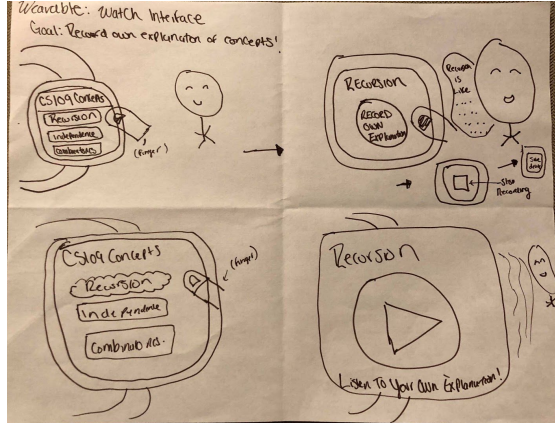 Wearable: Watch Interface
Goal: Record own explanation of concepts!
CS109 Concepts
Recursion
Independence
Combinatorics
(finger)
RECURSION
RECORD
OWN
Explanation
Recursion
is
like
Stop
Recording
CS109 Concepts
Recursion
Independence
Combinatorics.
(finger)
Recursion
Listen To Your Own Explanation!